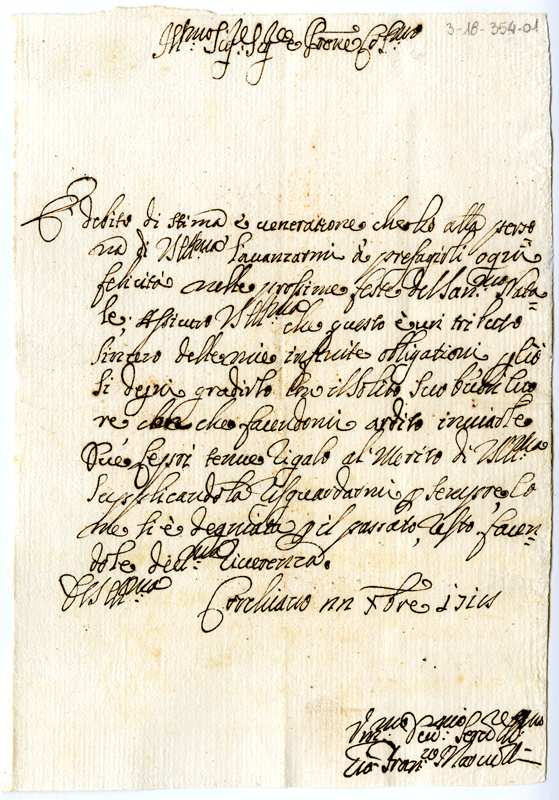 3-18-354-01
Ill:mo Sig:e Sig:e e Prone Col:mo
È debito di stima e veneratione che ho alla perso
na di VSIll:ma l'avanzarmi à presagirli ogni
felicità nelle prossime feste del San:mo Nata=
le; Assicuro VSIll:ma che questo è un tributo
sincero delle mie infinite obligationi,
si degni gradirlo con il solito suo buon cuo
re che facendomi ardito inviarle
due tenue regalo al merito di VSIll:ma
supplicandola risguardarmi p sempre, co
me si è degniata p il passato, resto, facen=
dole de:ma riverenza.
Di VSIll:ma
Corchiano xbre
Um:mo Dev:
Gio: Fran:co